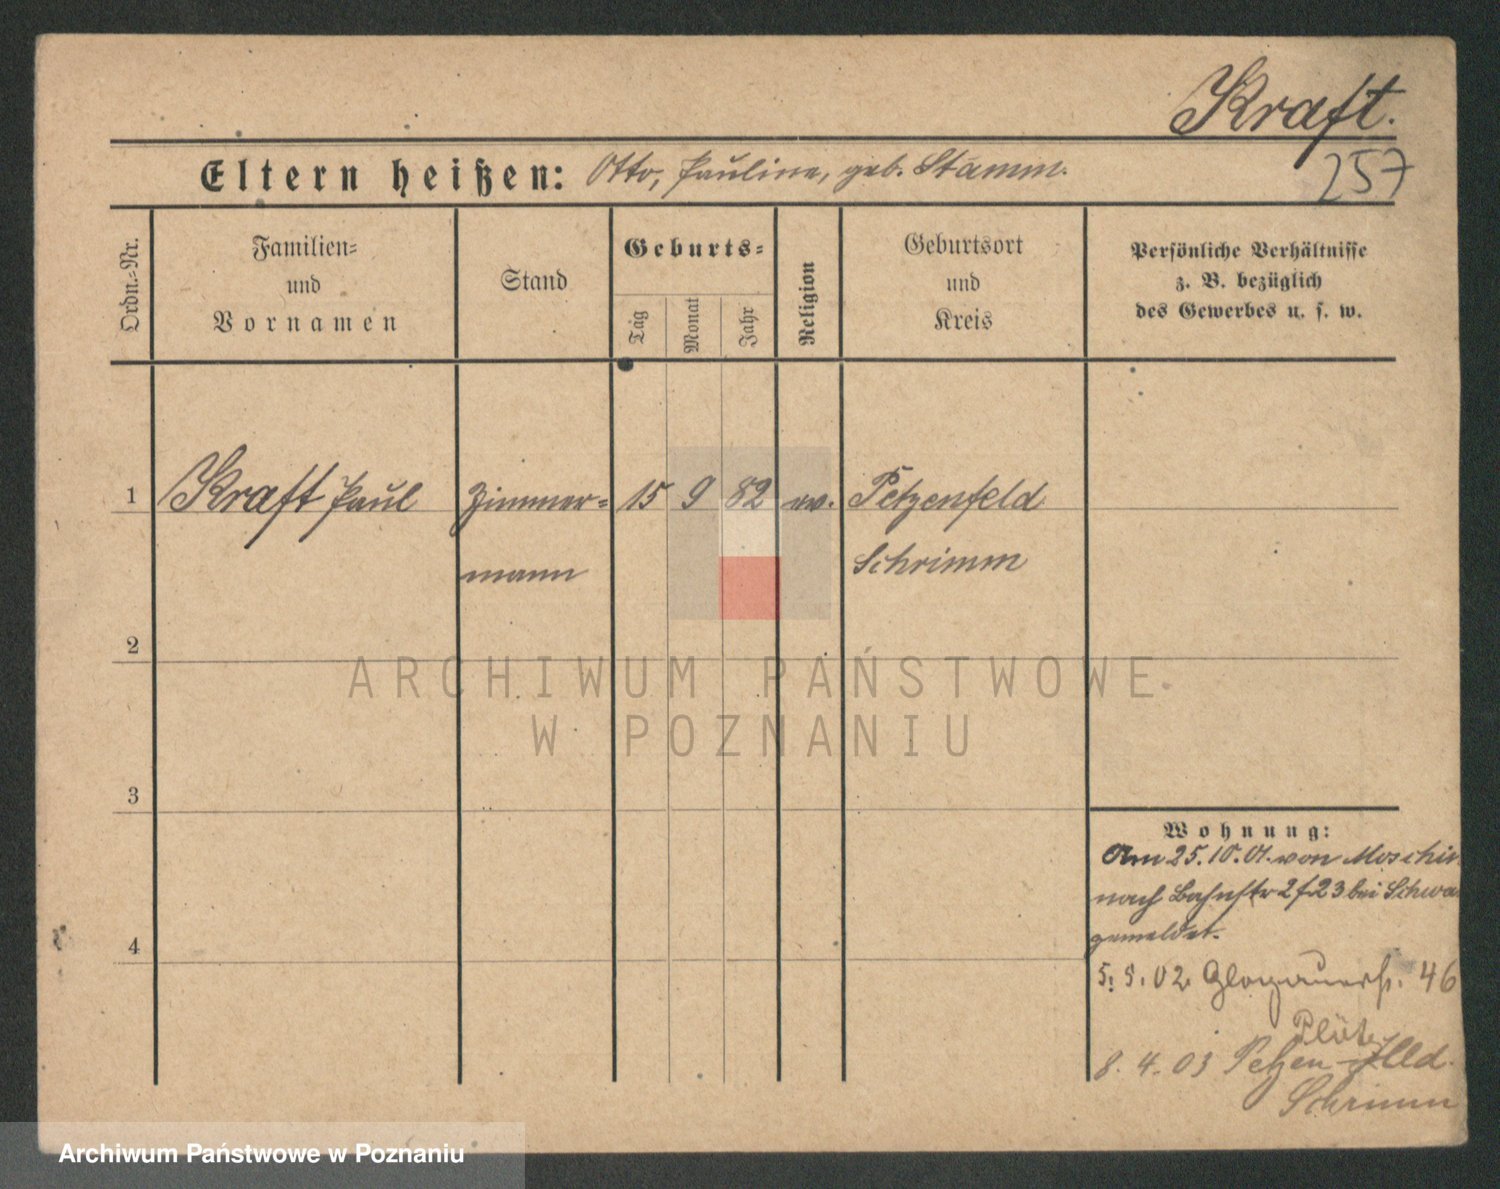 Kraft.
257
Eltern heißen: Otto, Pauline, geb. Stamm.
Ordn.-Nr.
Familien-
und
Vornamen
Stand
Geburts-
Tag
Monat
Jahr
Religion
Geburtsort
und
Kreis
Persönliche Verhältnisse
z. B. bezüglich
des Gewerbes u. s. w.
1 Kraft Paul Zimmer= 15 9 82 ev. Petzenfeld
mann Schrimm
2
3
4
Wohnung:
Am 25.10.01. von Moschin
nach Bahnstr 2 f 23 bei Schwa
gemeldet.
5. 5. 02 Glogauerstr. 46
8. 4. 03 Petzen
Schrimm
ARCHIWUM PAŃSTWOWE
W POZNANIU
Archiwum Państwowe w Poznaniu